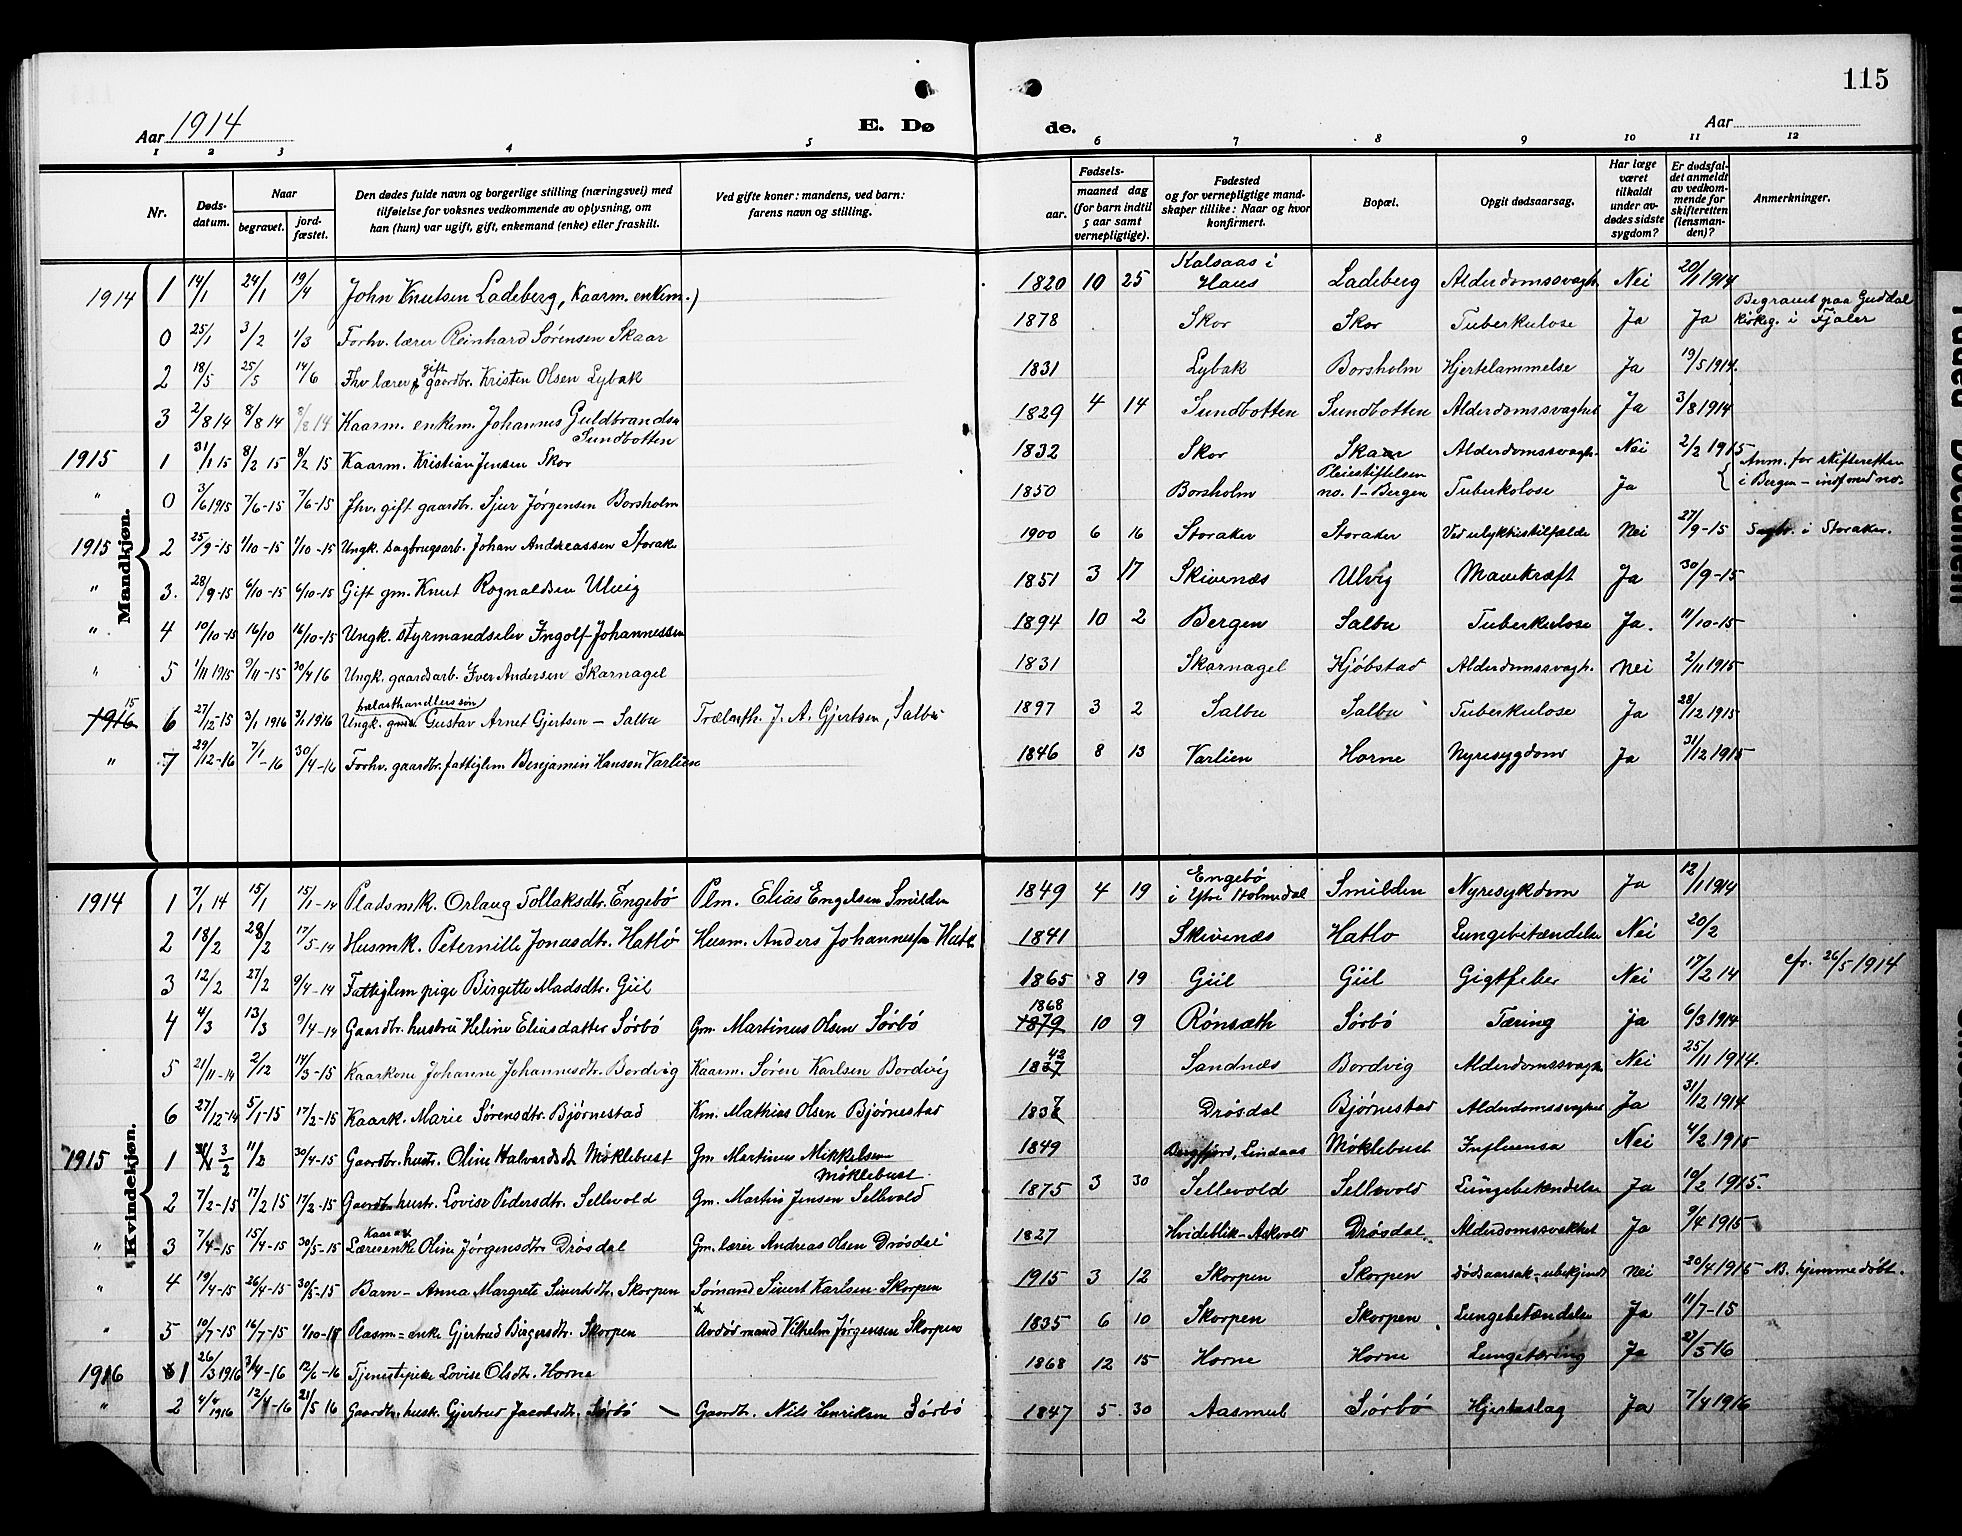 115
Aar 1914
E. Dø
de.
Aar
1 2 3 4 5 6 7 8 9 10 11 12
Nr.
Døds-datum.
Naar
begravet.
jord-fæstet.
Den dødes fulde navn og borgerlige stilling (næringsvei) med
tilføielse for voksnes vedkommende av oplysning, om
han (hun) var ugift, gift, enkemand (enke) eller fraskilt.
Ved gifte koner: mandens, ved barn:
farens navn og stilling.
Fødsels-
aar.
maaned dag
(for barn indtil
5 aar samt
vernepligtige).
Fødested
og for vernepligtige mand-
skaper tillike: Naar og hvor
konfirmert.
Bopæl.
Opgit dødsaarsag.
Har læge
været
tilkaldt
under av-
dødes sidste
sygdom?
Er dødsfal-
det anmeldt
av vedkom-
mende for
skifteretten
(lensman-
den)?
Anmerkninger.
Mandkjøn.
1914 1 14/1 24/1 19/4 John Knutsen Ladeberg, Kaarm. enkem.) 1820 10 25 Kalsaas i Haus Ladeberg Alderdomssvagh. Nei 20/1 1914
0 25/1 3/2 1/3 Forhv. lærer Reinhard Sørensen Skaar 1878 Skor Skor Tuberkulose Ja Ja Begravet paa Guddal kirkeg. i Fjaler
2 18/5 25/5 14/6 Fhv lærer gift gaardbr. Kristen Olsen Lybak 1831 Lybak Borsholm Hjertelammelse Ja 19/5 1914.
3 2/8 14 8/8 14 8/8 14 Kaarm. enkem. Johannes Guldbrandsn Sundbotten 1829 4 14 Sundbotten Sundbotten Alderdomssvaghet Ja 3/8 1914
1915 1 31/1 15 8/2 15 8/2 15 Kaarm. Kristian Jensen Skor 1832 Skor Skaar Alderdomssvagh. Nei 2/2 1915
" 0 3/6 1915 7/6-15 7/6-15 Fhv. gift gaardbr. Sjur Jørgensen Borsholm 1850 Borsholm Pleiestiftelsen no. 1 - Bergen Tuberkolose Ja Anm. for skifteretten i Bergen -
1915 2 25/9-15 1/10-15 1/10-15 Ungk. sagbrugsarb. Johan Andreassen Storak 1900 6 16 Storaker Storaker Ved ulykkestilfælde Nei 27/9-15 i Storaker.
" 3. 28/9-15 6/10-15 6/10-15 Gift gm. Knut Rognaldsen Ulvig 1851 3 17 Skivenæs Ulvig Mavekræft Ja 30/9-15
" 4 10/10-15 16/10 16/10-15 Ungk. styrmandselev Ingolf Johannessen 1894 10 2 Bergen Salbu Tuberkulose Ja. 11/10-15
" 5 1/11 1915 9/11-15 30/4 16 Ungk. gaardsarb. Iver Andersen Skarnagel 1831 Skarnagel Kjøbstad Alderdomssvagh. Nei 2/11 1915
1916 15 6 27/12-15 3/1 1916 3/1 1916 Ungk. trælasthandlerssøn Gustav Arnet Gjertsen - Salbu Trælasth. J. A. Gjertsen, Salbu 1897 3 2 Salbu Salbu Tuberkulose Ja 28/12 1915
" 7 29/12-16 7/1-16 30/4-16 Forhv. gaardbr. fattiglem Benjamin Hansen Varlien 1846 8 13 Varlien Horne Nyresygdom Ja 31/12 1915
Kvindekjøn.
1914 1 7/1 14 15/1 15/1-14 Pladsmk. Orlaug Tollaksdtr. Engebø Plm. Elias Engelsen Smilden 1849 4 19 Engebø i Ytre Holmedal Smilden Nyresykdom Ja 12/1 1914
2 18/2 28/2 17/5-14 Husmk. Peternille Jonasdtr. Hatlø Husm. Anders Johannessen Hatl 1841 Skivenæs Hatlo Lungebetændelse Nei 20/2
3 12/2 27/2 9/4-14 Fattiglem pige Birgette Madsdtr. Giil 1865 8 19 Giil Giil Gigtfeber Nei 17/2 14 cfr. 26/5 1914
4 4/3 13/3 9/4-14 Gaardbr. hustru Heline Eliasdatter Sørbø Gm. Martinus Olsen Sørbø 1868 1879 10 9 Rønsæth Sørbø Tæring Ja 6/3 1914
5 21/11-14 2/12 14/3-15 Kaarkone Johanne Johannesdtr. Bordvig Kaarm. Søren Karlsen Bordvig 1837 42 Sandnæs Bordvig Alderdomssvagh Nei 25/11 1914.
6 27/12-14 5/1-15 17/2-15 Kaark. Marie Sørensdtr. Bjørnestad Km. Mathias Olsen Bjørnestad 1837 Drøsdal Bjørnestad Alderdomssvaghed Ja 31/12 1914
1915 1 3/2 11/2 30/4-15 Gaardbr. hustr. Oline Halvardsdt. Møklebust Gm. Martinus Mikkelsen Møklebust 1849 Lindaas Møklebust Influensa Nei 4/2 1915
2 7/2-15 17/2 15 17/2-15 Gaardbr. hustr. Lovise Pedersdtr. Sellevold Gm. Martin Jensen Sellevold 1875 3 30 Sellevold Sellevold Lungebetændelse Ja 10/2 1915.
" 3 7/4-15 15/4-15 30/5-15 Lærerenke Oline Jørgensdtr. Drøsdal Gm. lærer Andreas Olsen Drøsdal 1827 Hvideblik - Askvold Drøsdal Alderdomssvakhet Ja 9/4 1915
" 4 19/4-15 26/4-15 30/5-15 Barn - Anna Margrete Sivertsdtr. Skorpen Sømand Sivert Karlsen Skorpen 1915 3 12 Skorpen Skorpen Dødsaarsak - ubekjendt Nei 20/4 1915 NB. hjemmedøbt.
" 5 10/7-15 16/7-15 1/10-15 Plasm = enke Gjertrud Birgersdtr. Skorpen Avdød mand Vilhelm Jørgensen Skorpen 1835 6 10 Skorpen Skorpen Lungebetændelse Ja 11/7-15
1916 1 26/3 1916 3/4-16 12/6-16 Tjenestepike Lovise Olsdtr. Horne 1868 12 15 Horne Horne Lungetæring Ja
" 2 4/4 1916 12/4-16 21/5 16 Gaardbr. husk. Gjertrud Jacobsdtr. Sørbø Gaardbr. Nils Henriksen Sørbø 1847 5 30 Aasmul Sørbø Hjerteslag Ja 7/4 1916